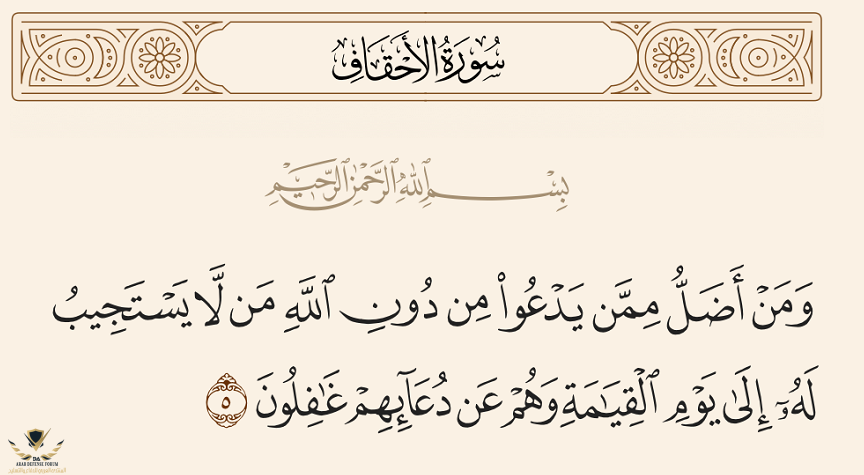 سُورَةُ الأَحْقَافِ
بِسْمِ ٱللَّهِ ٱلرَّحْمَٰنِ ٱلرَّحِيمِ
وَمَنْ أَضَلُّ مِمَّن يَدْعُوا۟ مِن دُونِ ٱللَّهِ مَن لَّا يَسْتَجِيبُ
لَهُۥٓ إِلَىٰ يَوْمِ ٱلْقِيَٰمَةِ وَهُمْ عَن دُعَآئِهِمْ غَٰفِلُونَ ٥
ARAB DEFENSE FORUM